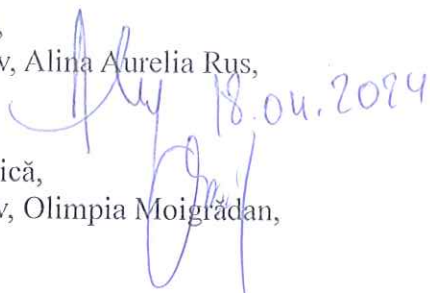 v, Alina Aurelia Rus,
18.04.2024
ică,
v, Olimpia Moigrădan,